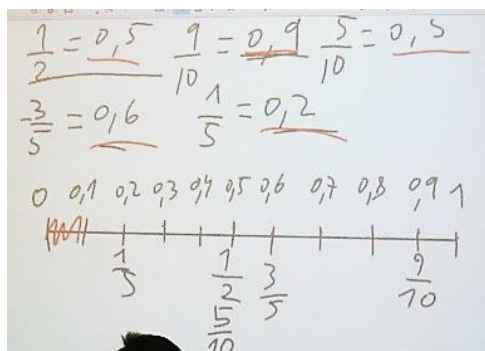 1/2 = 0,5 9/10 = 0,9 5/10 = 0,5
3/5 = 0,6 1/5 = 0,2
0 0,1 0,2 0,3 0,4 0,5 0,6 0,7 0,8 0,9 1
1/5 1/2 3/5 9/10
5/10